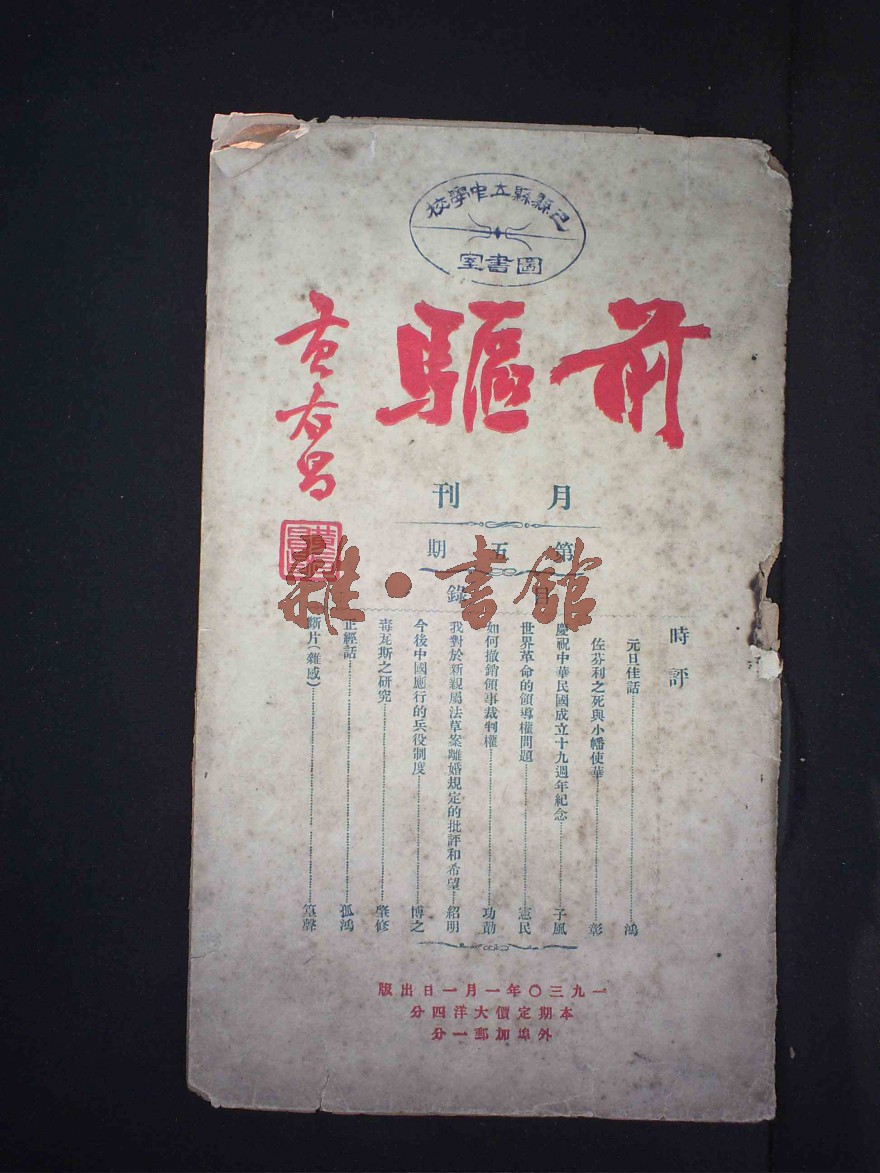 縣縣立中學校
圖書室
前驅
黃右昌
月刊
第五期
目錄
雅·書館
時評
元旦佳話 鴻
佐芬利之死與小幡使華 彰
慶祝中華民國成立十九週年紀念 子風
世界革命的領導權問題 憲民
如何撤銷領事裁判權 功勛
我對於新親屬法草案離婚規定的批評和希望 紹明
今後中國應行的兵役制度 博之
毒瓦斯之研究 肇修
正經話 孤鴻
斷片(雜感) 篁聲
一九三〇年一月一日出版
本期定價大洋四分
外埠加郵一分